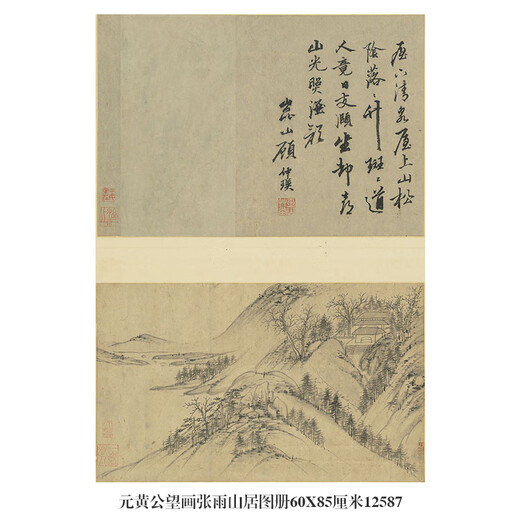 屋下清泉屋上山松
陰落〻竹斑〻道
人竟日支頤坐却喜
山光暎酒顔
崑山顧仲瑛
元黄公望画张雨山居图册60X85厘米12587